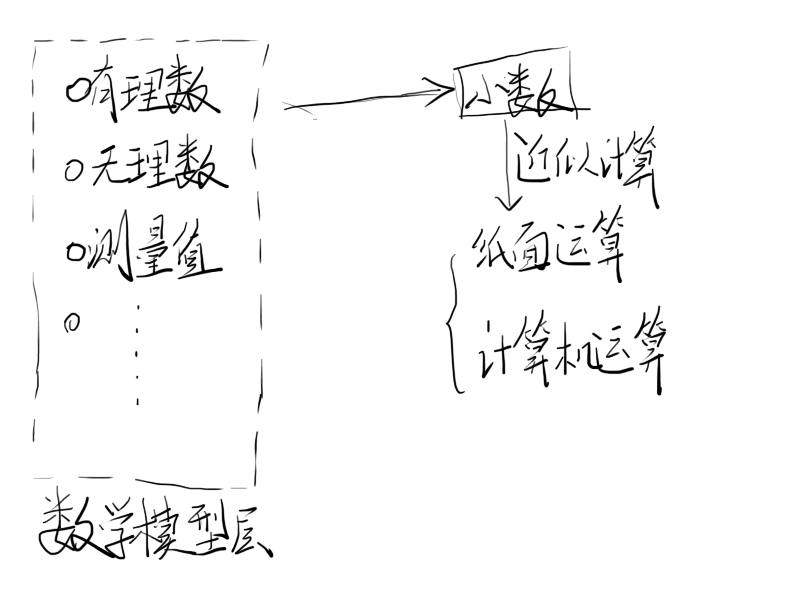 有理数
无理数
测量值
数学模型层
小数
近似计算
纸面运算
计算机运算